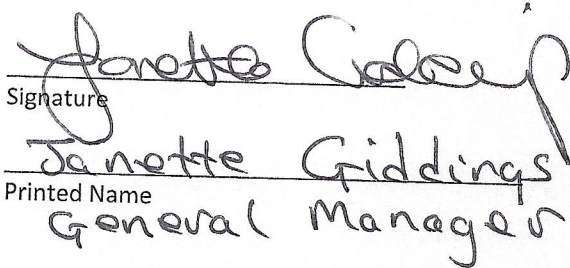 Janette
Signature
Janette Giddings
Printed Name
General Manager